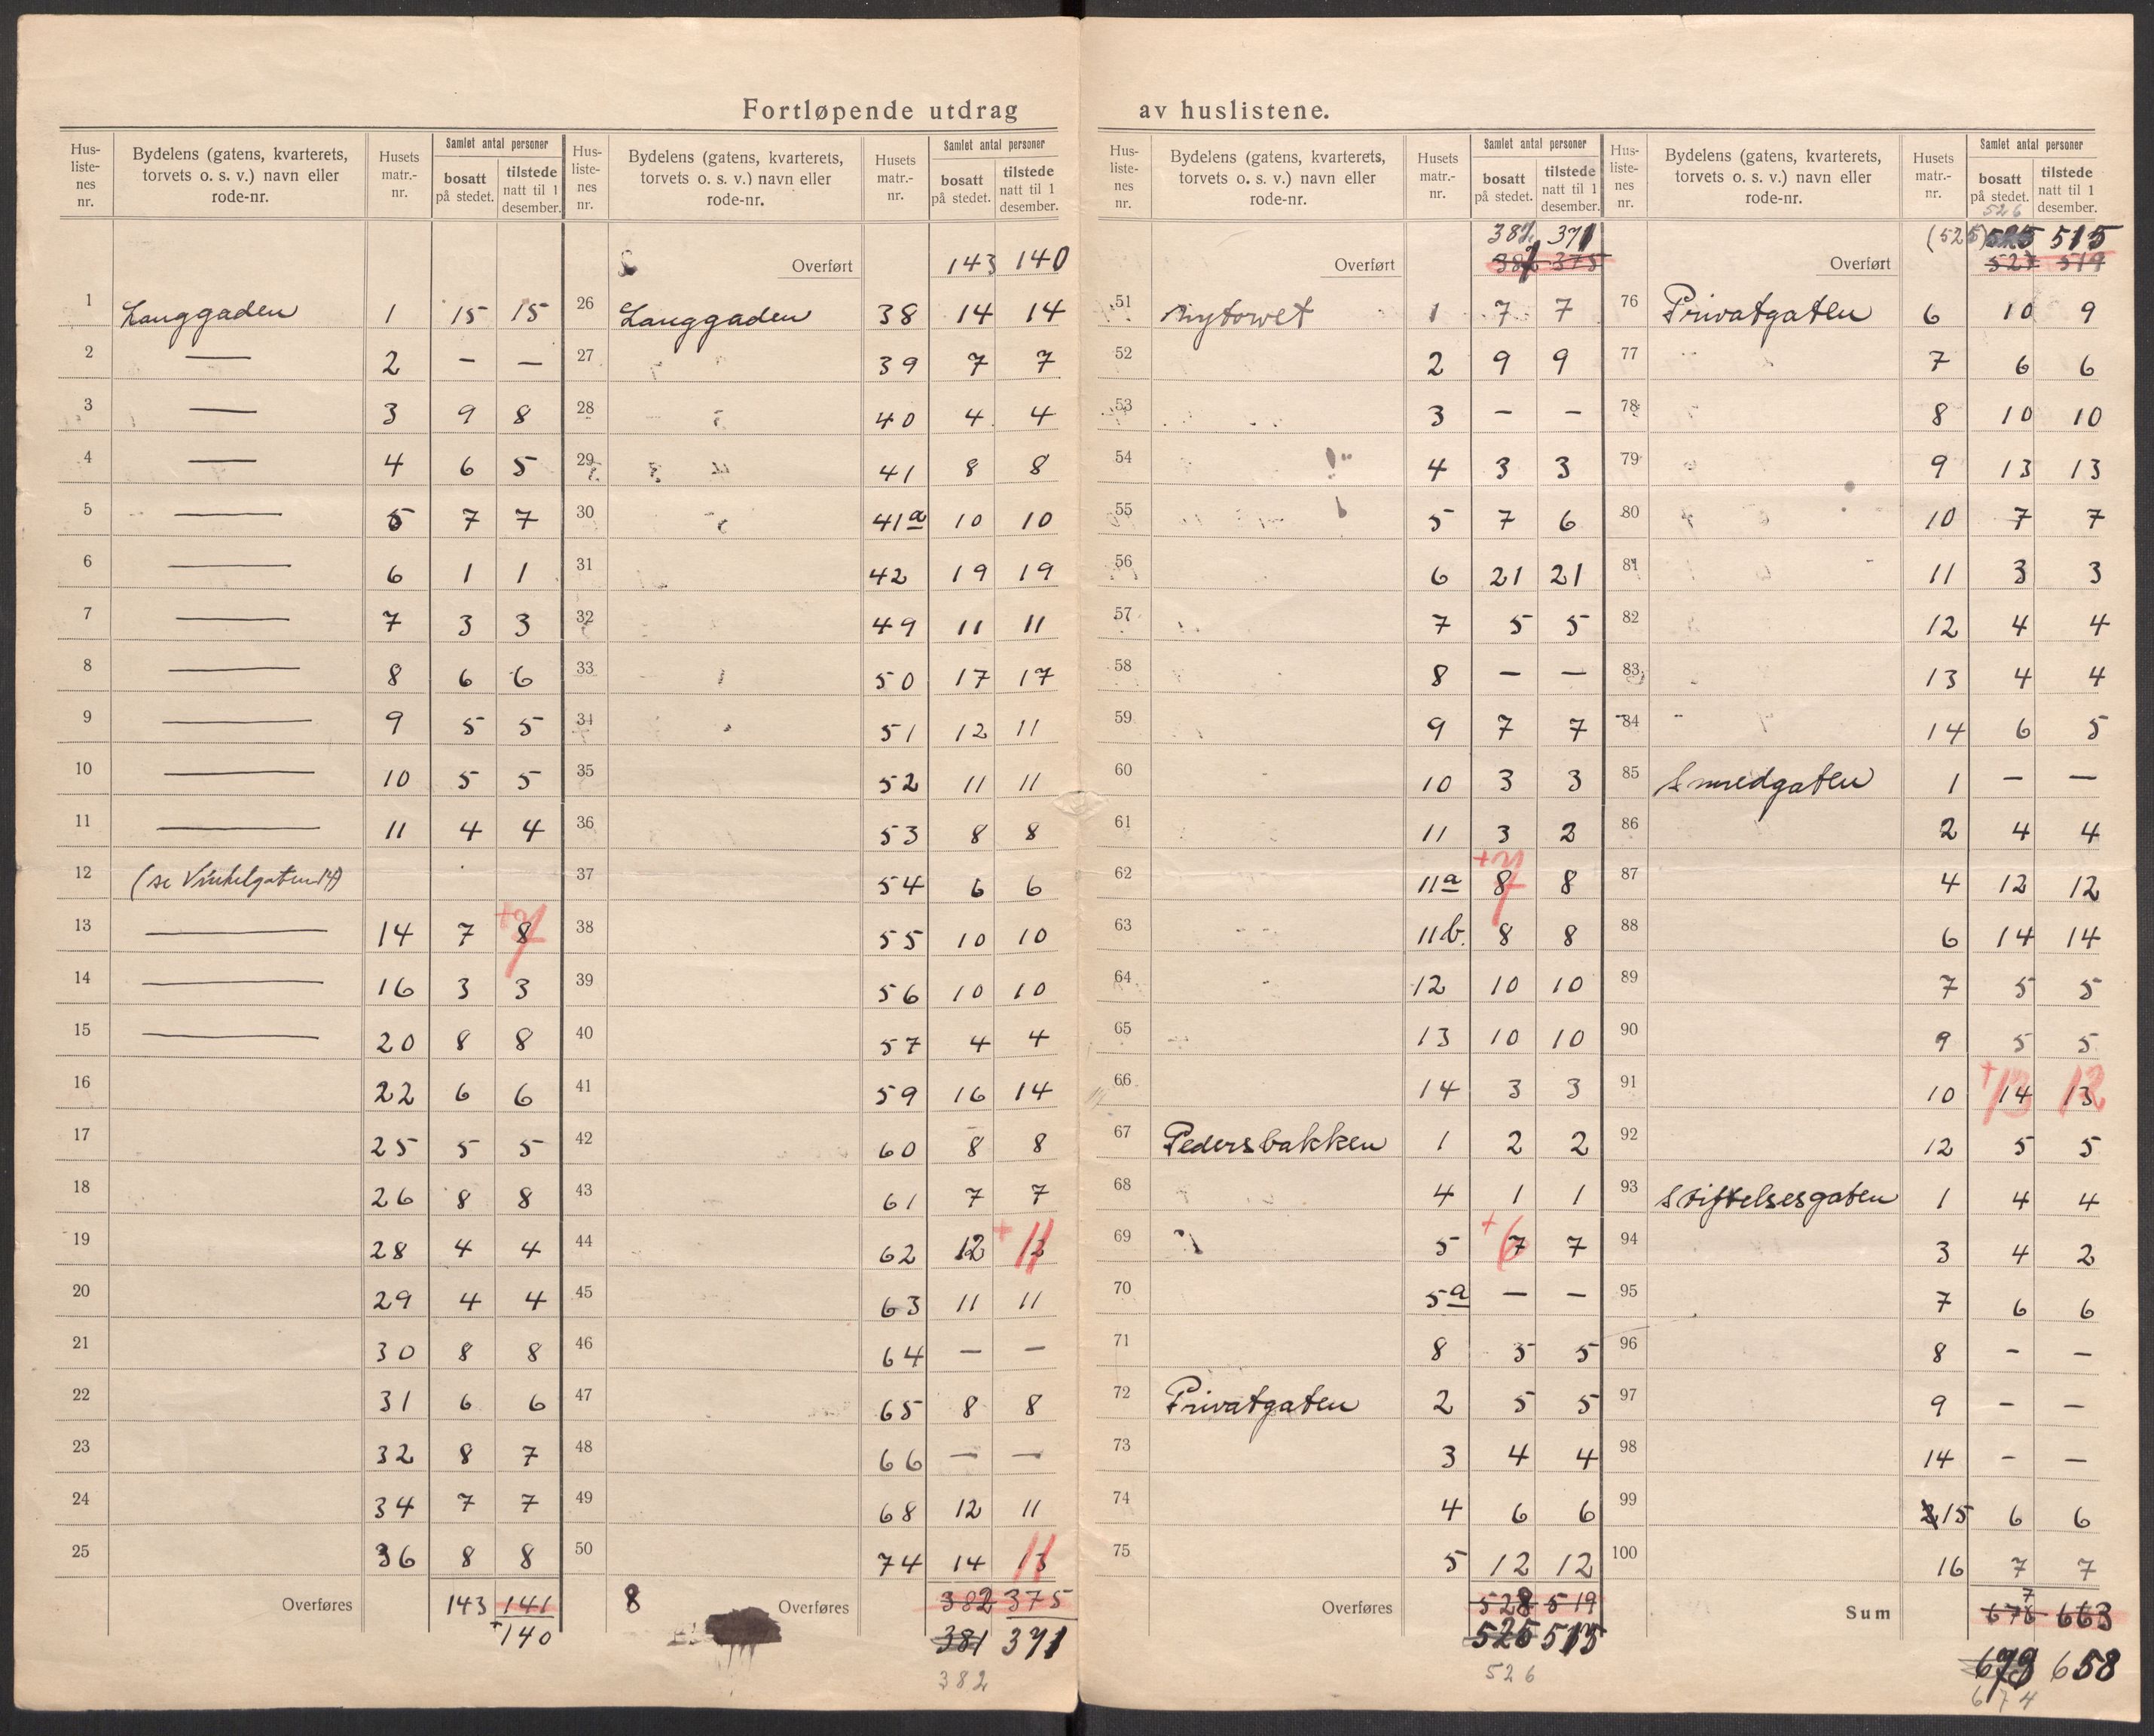 Fortløpende utdrag av huslistene.
Hus-liste-nes nr. | Bydelens (gatens, kvarterets, torvets o. s. v.) navn eller rode-nr. | Husets matr.-nr. | Samlet antal personer | bosatt på stedet. | tilstede natt til 1 desember.
1 Langgaden 1 15 15
2 — 2 – —
3 — 3 9 8
4 — 4 6 5
5 — 5 7 7
6 — 6 1 1
7 — 7 3 3
8 — 8 6 6
9 — 9 5 5
10 — 10 5 5
11 — 11 4 4
12 (se Vinkelgaten 14)
13 — 14 7 8 +7
14 — 16 3 3
15 — 20 8 8
16 22 6 6
17 25 5 5
18 26 8 8
19 28 4 4
20 29 4 4
21 30 8 8
22 31 6 6
23 32 8 7
24 34 7 7
25 36 8 8
Overføres 143 141
+140
Hus-liste-nes nr. | Bydelens (gatens, kvarterets, torvets o. s. v.) navn eller rode-nr. | Husets matr.-nr. | Samlet antal personer | bosatt på stedet. | tilstede natt til 1 desember.
Overført 143 140
26 Langgaden 38 14 14
27 39 7 7
28 40 4 4
29 41 8 8
30 41a 10 10
31 42 19 19
32 49 11 11
33 50 17 17
34 51 12 11
35 52 11 11
36 53 8 8
37 54 6 6
38 55 10 10
39 56 10 10
40 57 4 4
41 59 16 14
42 60 8 8
43 61 7 7
44 62 12 12 +11
45 63 11 11
46 64 – –
47 65 8 8
48 66 — —
49 68 12 11
50 74 14 13 11
8 Overføres 382 375
381 371
382
Hus-liste-nes nr. | Bydelens (gatens, kvarterets, torvets o. s. v.) navn eller rode-nr. | Husets matr.-nr. | Samlet antal personer | bosatt på stedet. | tilstede natt til 1 desember.
371
Overført 382 375
51 Nytorvet 1 7 7
52 2 9 9
53 3 – –
54 4 3 3
55 5 7 6
56 6 21 21
57 7 5 5
58 8 – —
59 9 7 7
60 10 3 3
61 11 3 2
62 11a 8 8 +7
63 11b. 8 8
64 12 10 10
65 13 10 10
66 14 3 3
67 Pedersbakken 1 2 2
68 4 1 1
69 5 7 7 +6
70 5a – –
71 8 5 5
72 Privatgaten 2 5 5
73 3 4 4
74 4 6 6
75 5 12 12
Overføres 528 519
525 515
526
Hus-liste-nes nr. | Bydelens (gatens, kvarterets, torvets o. s. v.) navn eller rode-nr. | Husets matr.-nr. | Samlet antal personer | bosatt på stedet. | tilstede natt til 1 desember.
526
(525) 525 515
Overført 527 519
76 Privatgaten 6 10 9
77 7 6 6
78 8 10 10
79 9 13 13
80 10 7 7
81 11 3 3
82 12 4 4
83 13 4 4
84 14 6 5
85 Smedgaten 1 – —
86 2 4 4
87 4 12 12
88 6 14 14
89 7 5 5
90 9 5 5
91 10 14 13 +13 12
92 12 5 5
93 Stiftelsesgaten 1 4 4
94 3 4 2
95 7 6 6
96 8 – –
97 9 – –
98 14 – –
99 15 6 6
100 16 7 7
Sum 676 663
7
658
674